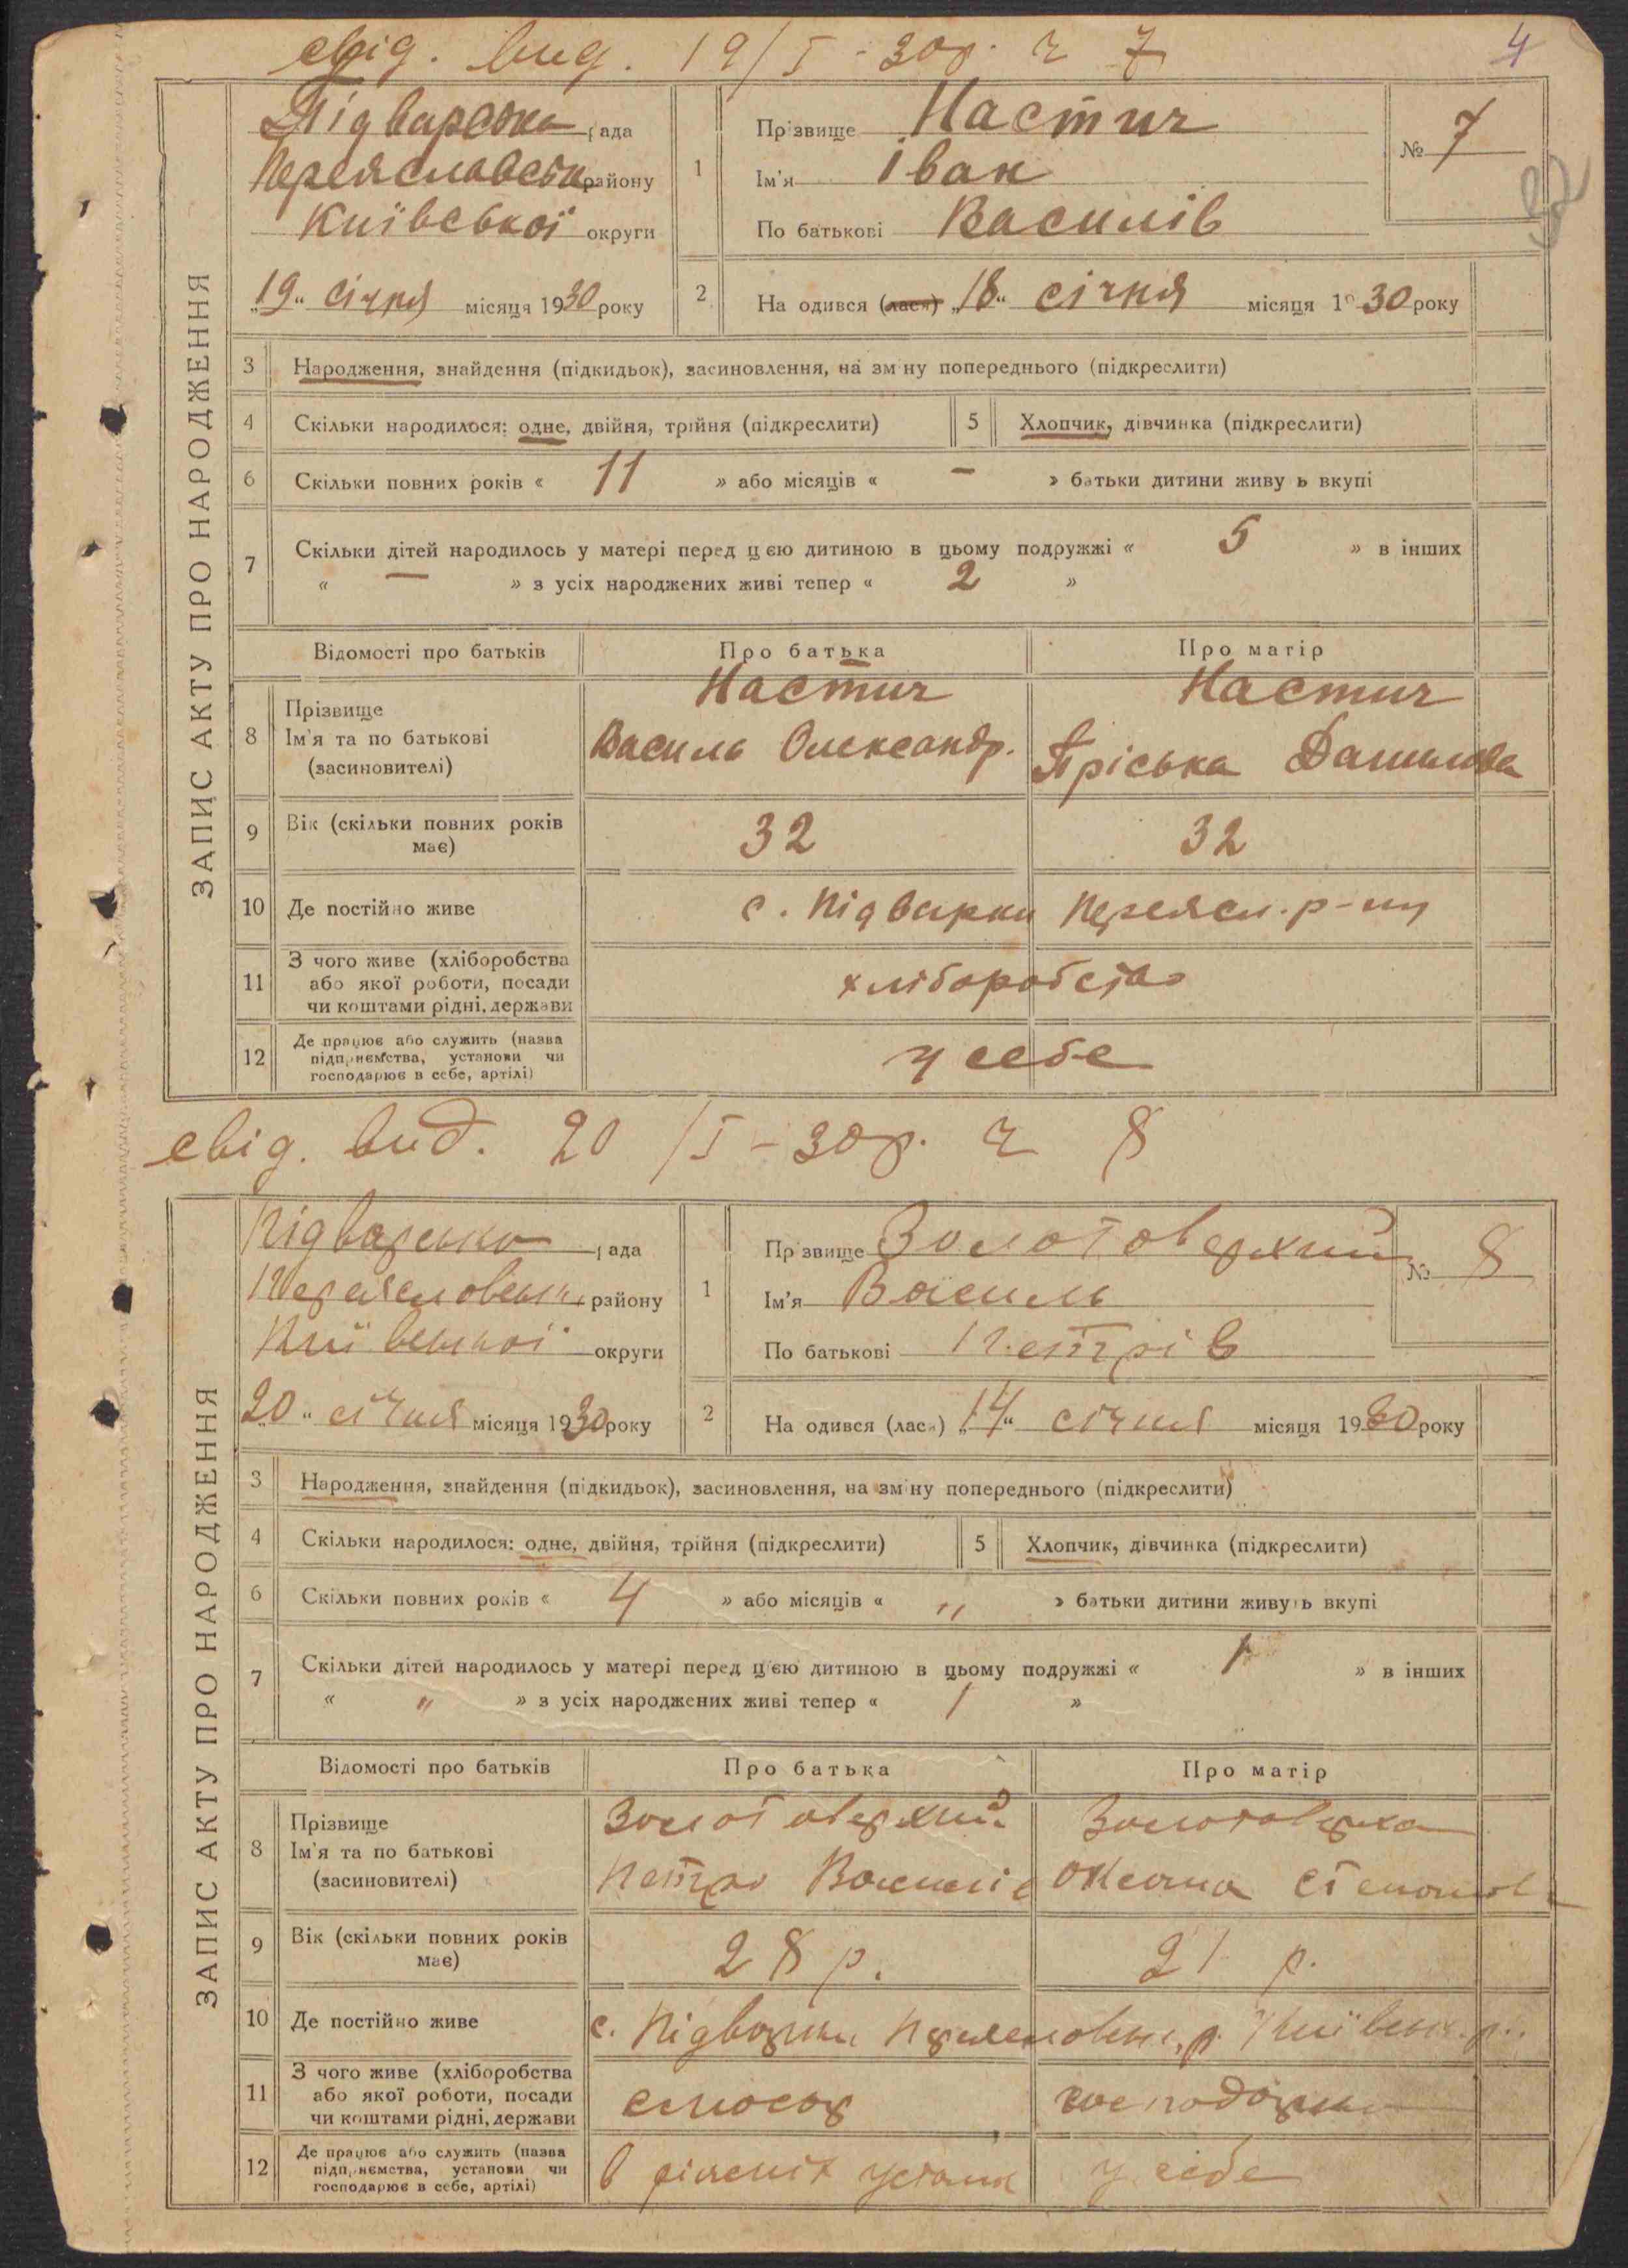 свід. вид. 19/I-30р. ч 7
4
ЗАПИС АКТУ ПРО НАРОДЖЕННЯ
Підварська рада
Переяславськ району
Київської округи
„19" січня місяця 1930 року
1 Прізвище Настич
Ім'я Іван
По батькові Василів
№ 7
2 На одився (лася) „18" січня місяця 1930 року
3 Народження, знайдення (підкидьок), засиновлення, на зміну попереднього (підкреслити)
4 Скільки народилося: одне, двійня, трійня (підкреслити) 5 Хлопчик, дівчинка (підкреслити)
6 Скільки повних років « 11 » або місяців « – » батьки дитини живу ь вкупі
7 Скільки дітей народилось у матері перед цією дитиною в цьому подружжі « 5 » в інших
« — » з усіх народжених живі тепер « 2 »
Відомості про батьків Про батька Про матір
8 Прізвище
Ім'я та по батькові
(засиновителі)
Настич
Василь Олександр.
Настич
Пріська Данилова
9 Вік (скільки повних років
має)
32 32
10 Де постійно живе с. Підварки Переясл. р-ну
11 З чого живе (хліборобства
або якої роботи, посади
чи коштами рідні, держави
хліборобство
12 Де працює або служить (назва
підприємства, установи чи
господарює в себе, артілі)
у себе
свід. вид. 20/I-30р. ч 8
ЗАПИС АКТУ ПРО НАРОДЖЕННЯ
Підварська рада
Переяславськ. району
Київської округи
„20" січня місяця 1930 року
1 Прізвище Золотоверхий
Ім'я Василь
По батькові Петрів
№ 8
2 На одився (лася) „14" січня місяця 1930 року
3 Народження, знайдення (підкидьок), засиновлення, на зміну попереднього (підкреслити)
4 Скільки народилося: одне, двійня, трійня (підкреслити) 5 Хлопчик, дівчинка (підкреслити)
6 Скільки повних років « 4 » або місяців « „ » батьки дитини живуть вкупі
7 Скільки дітей народилось у матері перед цією дитиною в цьому подружжі « 1 » в інших
« „ » з усіх народжених живі тепер « 1 »
Відомості про батьків Про батька Про матір
8 Прізвище
Ім'я та по батькові
(засиновителі)
Золотоверхий
Петро Василів
Золотоверха
Оксана Степанов
9 Вік (скільки повних років
має)
28 р. 21 р.
10 Де постійно живе с. Підварки Переяславськ. р. Київськ.
11 З чого живе (хліборобства
або якої роботи, посади
чи коштами рідні, держави
слюсар
господарка
12 Де працює або служить (назва
підприємства, установи чи
господарює в себе, артілі)
в різних устан
у себе